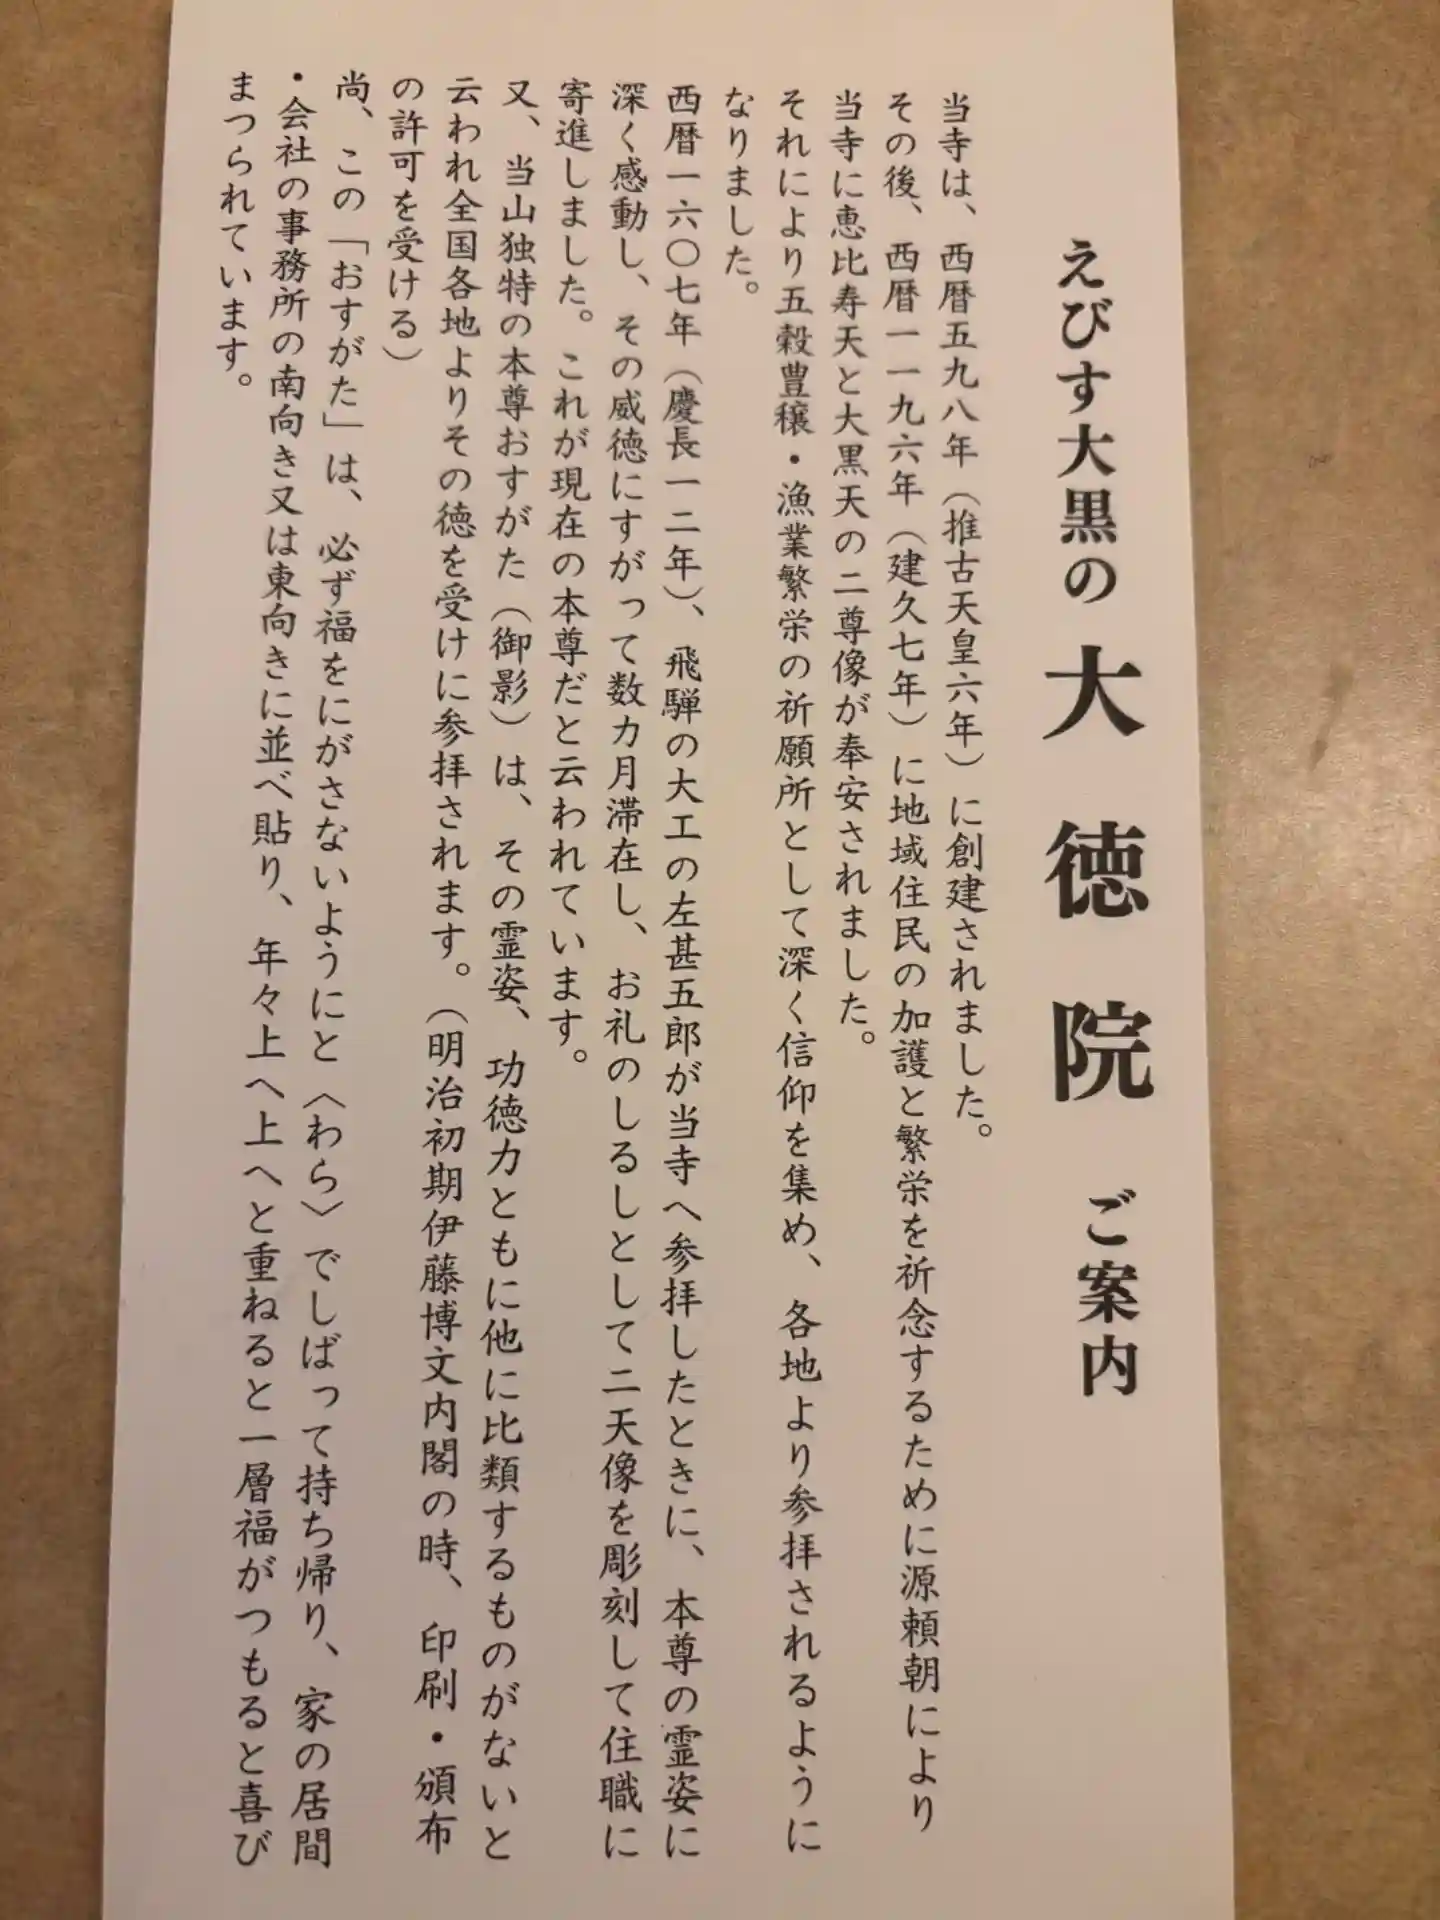 えびす大黒の大徳院 ご案内
当寺は、西暦五九八年（推古天皇六年）に創建されました。
その後、西暦一一九六年（建久七年）に地域住民の加護と繁栄を祈念するために源頼朝により
当寺に恵比寿天と大黒天の二尊像が奉安されました。
それにより五穀豊穣・漁業繁栄の祈願所として深く信仰を集め、各地より参拝されるように
なりました。
西暦一六〇七年（慶長一二年）、飛騨の大工の左甚五郎が当寺へ参拝したときに、本尊の霊姿に
深く感動し、その威徳にすがって数カ月滞在し、お礼のしるしとして二天像を彫刻して住職に
寄進しました。これが現在の本尊だと云われています。
又、当山独特の本尊おすがた（御影）は、その霊姿、功徳力ともに他に比類するものがないと
云われ全国各地よりその徳を受けに参拝されます。（明治初期伊藤博文内閣の時、印刷・頒布
の許可を受ける）
尚、この「おすがた」は、必ず福をにがさないようにと〈わら〉でしばって持ち帰り、家の居間
・会社の事務所の南向き又は東向きに並べ貼り、年々上へ上へと重ねると一層福がつもると喜び
まつられています。